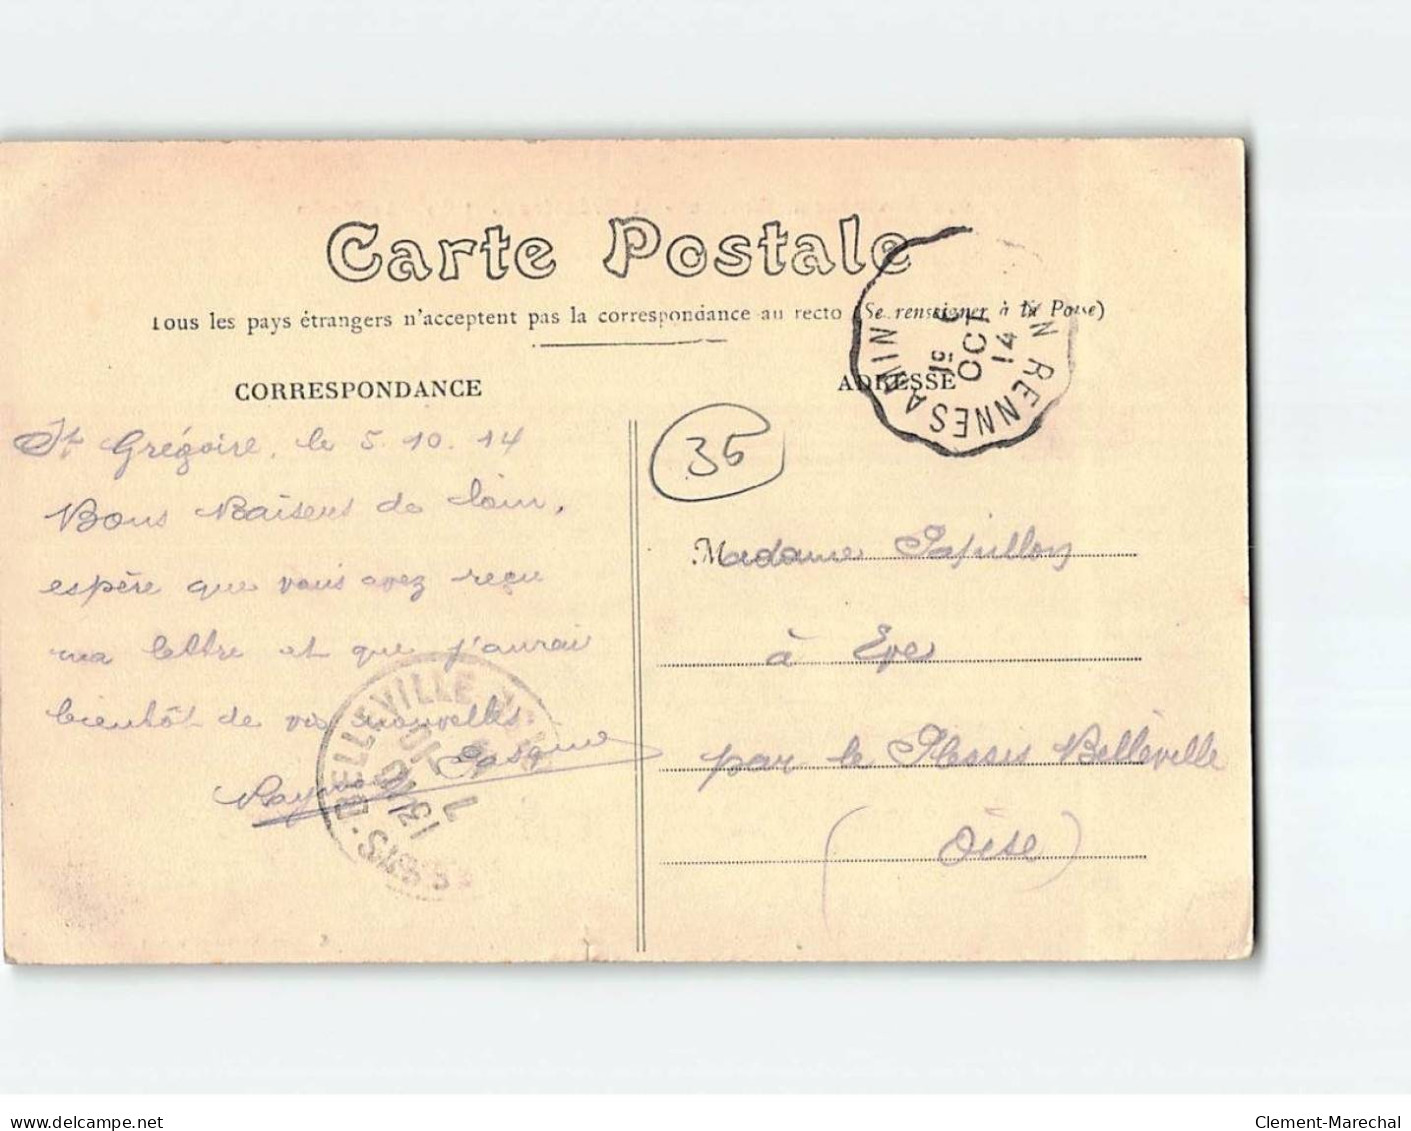 Carte Postale
Tous les pays étrangers n'acceptent pas la correspondance au recto (Se renseigner à la Poste)
CORRESPONDANCE
ADRESSE
RENNES A MIN
19 6
OCT
14
35
St Grégoire, le 5.10.14
Bons Baisers de loin,
espère que vous avez reçu
ma lettre et que j'aurai
bientôt de vos nouvelles.
Raymond
Madame Papillon
à Eve
par le Plessis Belleville
(Oise)
BELLEVILLE
7
www.delcampe.net
Clement-Marechal